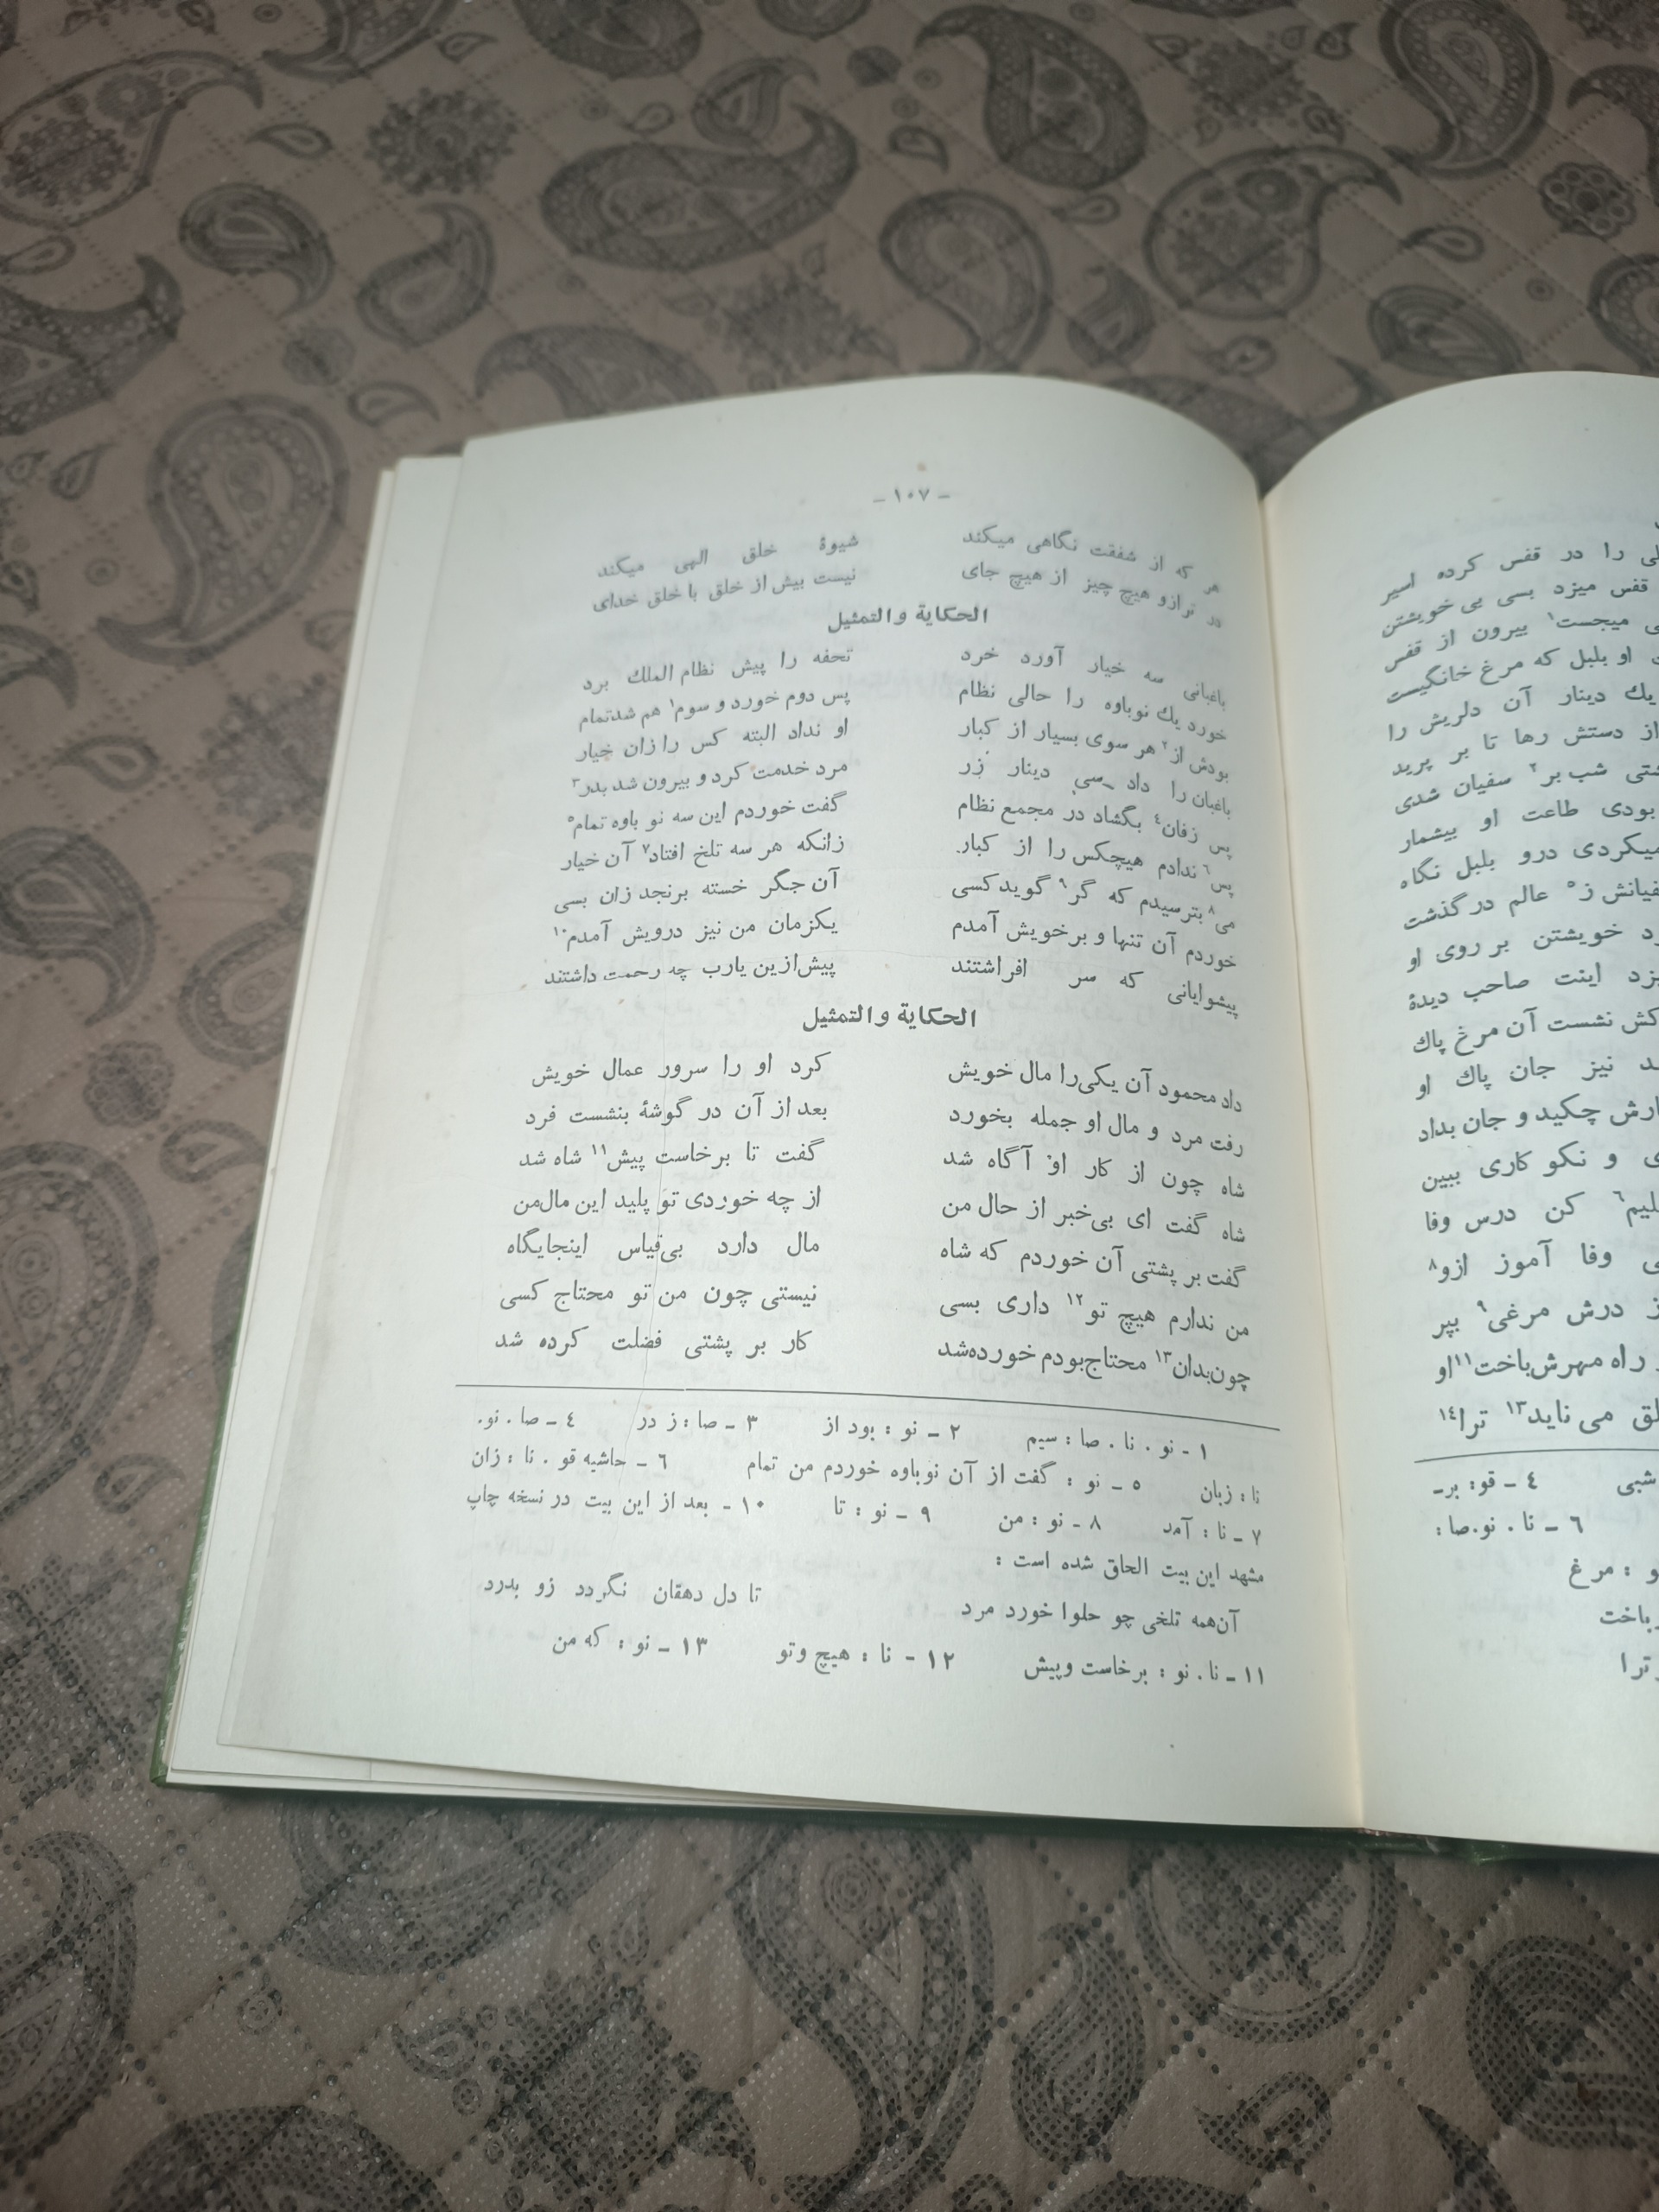 - ۱۰۷ -
هر که از شفقت نگاهی میکند شیوهٔ خلق الهی میکند
در ترازو هیچ چیز از هیچ جای نیست بیش از خلق با خلق خدای
الحکایة والتمثیل
باغبانی سه خیار آورد خرد تحفه را پیش نظام الملك برد
خورد یك نوباوه را حالی نظام پس دوم خورد و سوم۱ هم شدتمام
بودش از۲ هر سوی بسیار از کبار او نداد البته کس را زان خیار
باغبان را داد سی دینار زر مرد خدمت کرد و بیرون شد بدر۳
پس زفان٤ بگشاد در مجمع نظام گفت خوردم این سه نو باوه تمام٥
پس٦ ندادم هیچکس را از کبار زانکه هر سه تلخ افتاد۷ آن خیار
می۸ بترسیدم که گر۹ گوید کسی آن جگر خسته برنجد زان بسی
خوردم آن تنها و بر خویش آمدم یکزمان من نیز درویش آمدم۱۰
پیشوایانی که سر افراشتند پیش‌ازین یارب چه رحمت داشتند
الحکایة والتمثیل
داد محمود آن یکی‌را مال خویش کرد او را سرور عمال خویش
رفت مرد و مال او جمله بخورد بعد از آن در گوشهٔ بنشست فرد
شاه چون از کار او آگاه شد گفت تا برخاست پیش۱۱ شاه شد
شاه گفت ای بی‌خبر از حال من از چه خوردی تو پلید این مال‌من
گفت بر پشتی آن خوردم که شاه مال دارد بی‌قیاس اینجایگاه
من ندارم هیچ تو۱۲ داری بسی نیستی چون من تو محتاج کسی
چون‌بدان۱۳ محتاج‌بودم خورده‌شد کار بر پشتی فضلت کرده شد
۱ - نو . نا . صا : سیم ۲ - نو : بود از ۳ - صا : ز در ٤ - صا . نو.
نا : زبان ٥ - نو : گفت از آن نوباوه خوردم من تمام ٦ - حاشیه قو . نا : زان
۷ - نا : آمد ۸ - نو : من ۹ - نو : تا ۱۰ - بعد از این بیت در نسخه چاپ
مشهد این بیت الحاق شده است :
آن‌همه تلخی چو حلوا خورد مرد تا دل دهقان نگردد زو بدرد
۱۱ - نا . نو : برخاست وپیش ۱۲ - نا : هیچ وتو ۱۳ - نو : که من
را در قفس کرده اسیر
قفس میزد بسی بی خویشتن
میجست۱ بیرون از قفس
او بلبل که مرغ خانگیست
یك دینار آن دلریش را
از دستش رها تا بر پرید
شب بر۲ سفیان شدی
بودی طاعت او بیشمار
میکردی درو بلبل نگاه
ز٥ عالم در گذشت
خویشتن بر روی او
اینت صاحب دیدهٔ
نشست آن مرغ پاك
نیز جان پاك او
چکید و جان بداد
و نکو کاری ببین
کن درس وفا
وفا آموز ازو۸
درش مرغی۹ بپر
راه مهرش‌باخت۱۱او
می ناید۱۳ ترا۱٤
شبی ٤ - قو: بر-
٦ - نا . نو.صا :
: مرغ
باخت
ترا